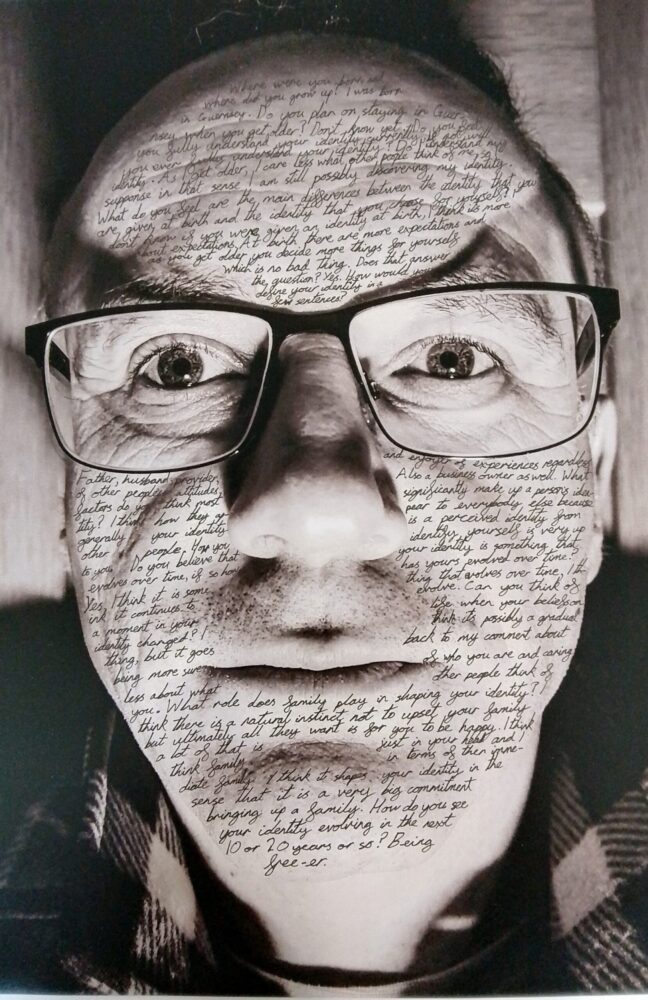 Where were you born and
where did you grow up? I was born
in Guernsey. Do you plan on staying in Guer-
nsey when you get older? Don't know yet. Do you feel
you fully understand your identity currently? Do
you ever fully understand your identity? I understand my
identity. As I get older, I care less what other people think of me, so I
suppose in that sense I am still possibly discovering my identity.
What do you feel are the main differences between the identity that you
are given at birth and the identity that you choose for yourself? I
don't know if you were given an identity at birth, I think its more
about expectations. At birth there are more expectations and
as you get older you decide more things for yourself
which is no bad thing. Does that answer
the question? Yes. How would you
define your identity in a
few sentences?
Father, husband, provider, and enjoyer of experiences regardless
of other peoples attitudes. Also a business owner as well. What
factors do you think most significantly make up a persons iden-
tity? I think how they ap pear to everybody else because
generally your identity is a perceived identity from
other people, how you identify yourself is very up
to you. Do you believe that your identity is something that
evolves over time, if so how has yours evolved over time?
Yes, I think it is some thing that evolves over time, I th-
ink it continues to evolve. Can you think of
a moment in your life when your beliefs on
identity changed? I think its possibly a gradual
thing, but it goes back to my comment about
being more sure of who you are and caring
less about what other people think of
you. What role does family play in shaping your identity? I
think there is a natural instinct not to upset your family
but ultimately all they want is for you to be happy. I think
a lot of that is just in your head and I
think family in terms of then imme-
diate family. I think it shapes your identity in the
sense that it is a very big commitment
bringing up a family. How do you see
your identity evolving in the next
10 or 20 years or so? Being
free-er.